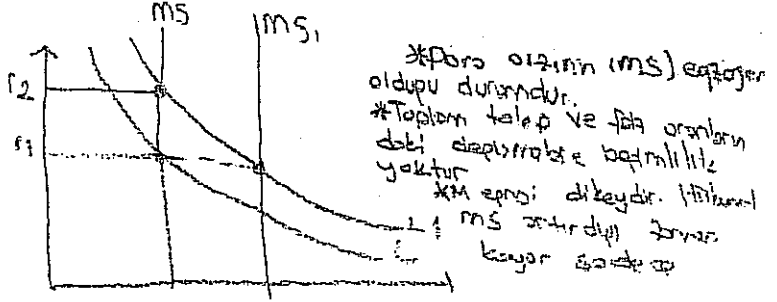 MS
MS₁
r2
r1
*Para arzının (MS) egzojen
olduğu durumdur.
*Toplam talep ve faiz oranların
daki değişmelere bağımlılık
yoktur
*M eğrisi dikeydir.
L1 MS artırdığı zaman
L kayar